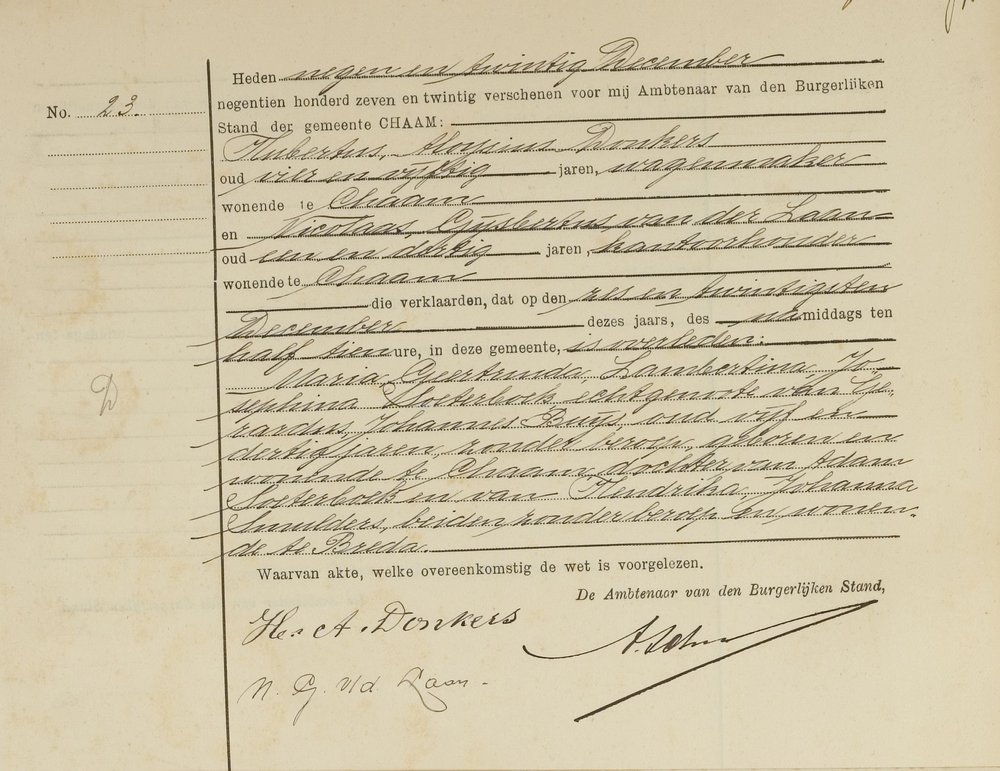 No. 23.
Heden negen en twintig December
negentien honderd zeven en twintig verschenen voor mij Ambtenaar van den Burgerlijken
Stand der gemeente CHAAM:
Hubertus, Aloysius Donkers
oud vier en vijftig jaren, wagenmaker
wonende te Chaam
en Nicolaas, Gijsbertus van der Laan
oud een en dertig jaren, kantoorhouder
wonende te Chaam
die verklaarden, dat op den zes en twintigsten
December dezes jaars, des na middags ten
half tien ure, in deze gemeente, is overleden:
Maria, Geertruida, Lambertina Jo-
sephina Soeterboek echtgenoote van Ge-
rardus, Johannes Buijs, oud vijf en
dertig jaren, zonder beroep, geboren en
wonende te Chaam dochter van Adam
Soeterboek en van Hendrika Johanna
Smulders, beiden zonder beroep en wonen-
de te Breda.
Waarvan akte, welke overeenkomstig de wet is voorgelezen.
De Ambtenaar van den Burgerlijken Stand,
H. A. Donkers
N. G. v/d Laan
D